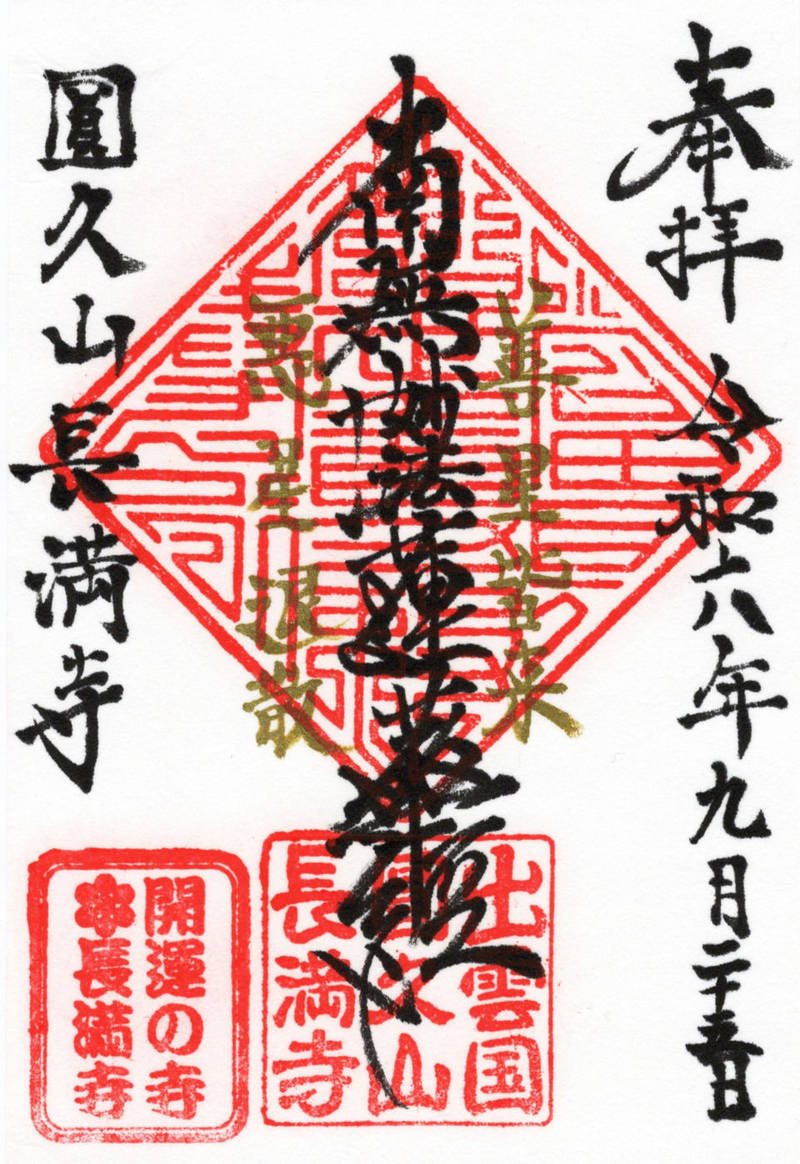 奉拝
令和六年九月二十五日
善星皆来
南無妙法蓮華経
悪星退散
圓久山長満寺
出雲国
圓久山
長満寺
開運の寺
長満寺